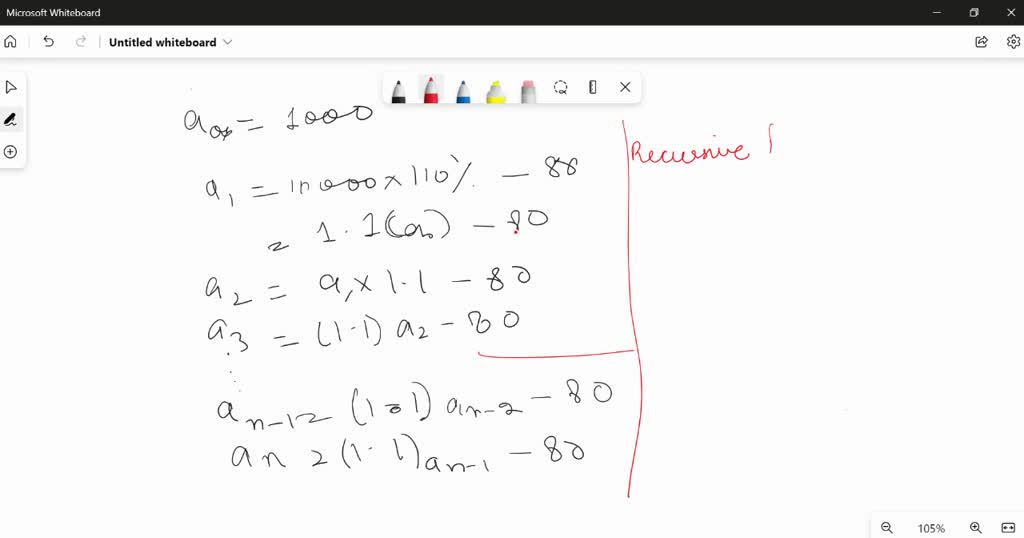 Microsoft Whiteboard
Untitled whiteboard
a₀ = 1000
a₁ = 10000 × 110% − 80
= 1.1(a₀) − 80
a₂ = a₁ × 1.1 − 80
a₃ = (1.1) a₂ − 80
⋮
aₙ₋₁ = (1.1) aₙ₋₂ − 80
aₙ = (1.1) aₙ₋₁ − 80
Recursive
105%